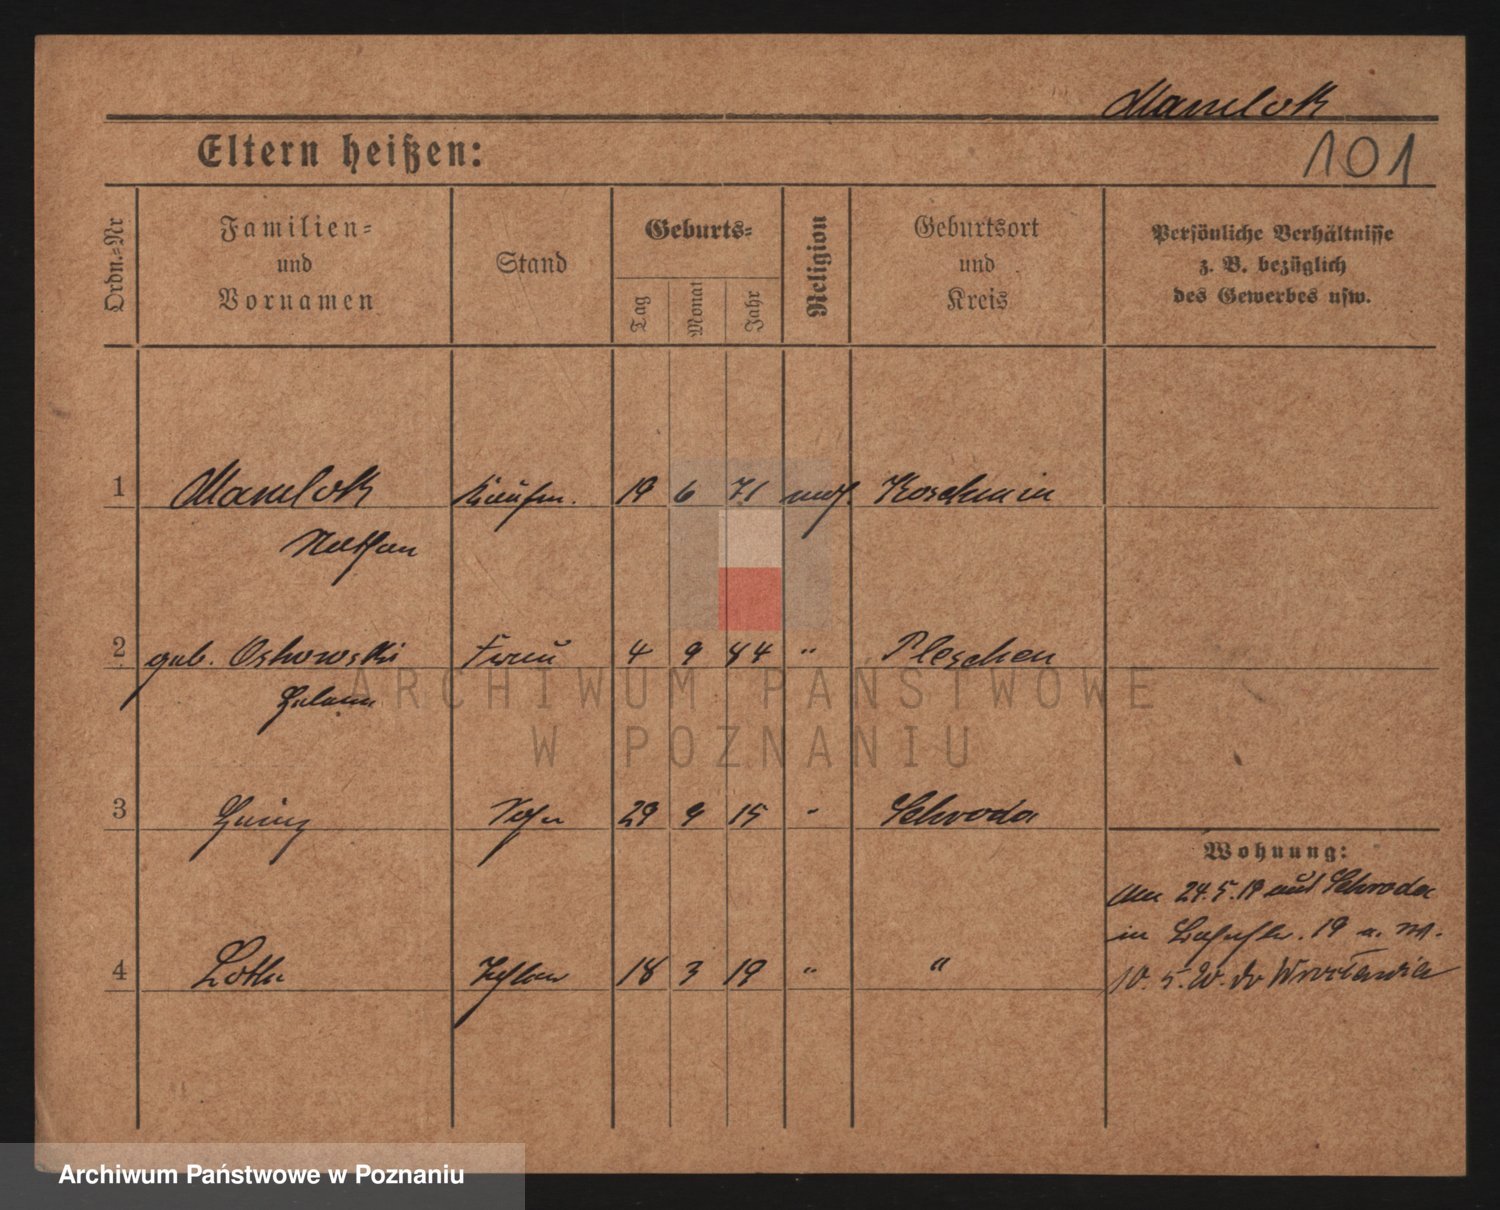 Mamlok
Eltern heißen:
101
Ordn.-Nr
Familien-
und
Vornamen
Stand
Geburts-
Tag
Monat
Jahr
Religion
Geburtsort
und
Kreis
Persönliche Verhältnisse
z. B. bezüglich
des Gewerbes usw.
1 Mamlok Kaufm. 19 6 71 mos. Koschmin
Nathan
2 geb. Frau 4 9 " Pleschen
3 Heinz Sohn 29 9 15 Schroda
Wohnung:
Am 24.5.19 aus Schroda
in 19
4 Tochter 18 3 19 " "
10.5.20. do Wrocławia
ARCHIWUM PAŃSTWOWE
W POZNANIU
Archiwum Państwowe w Poznaniu